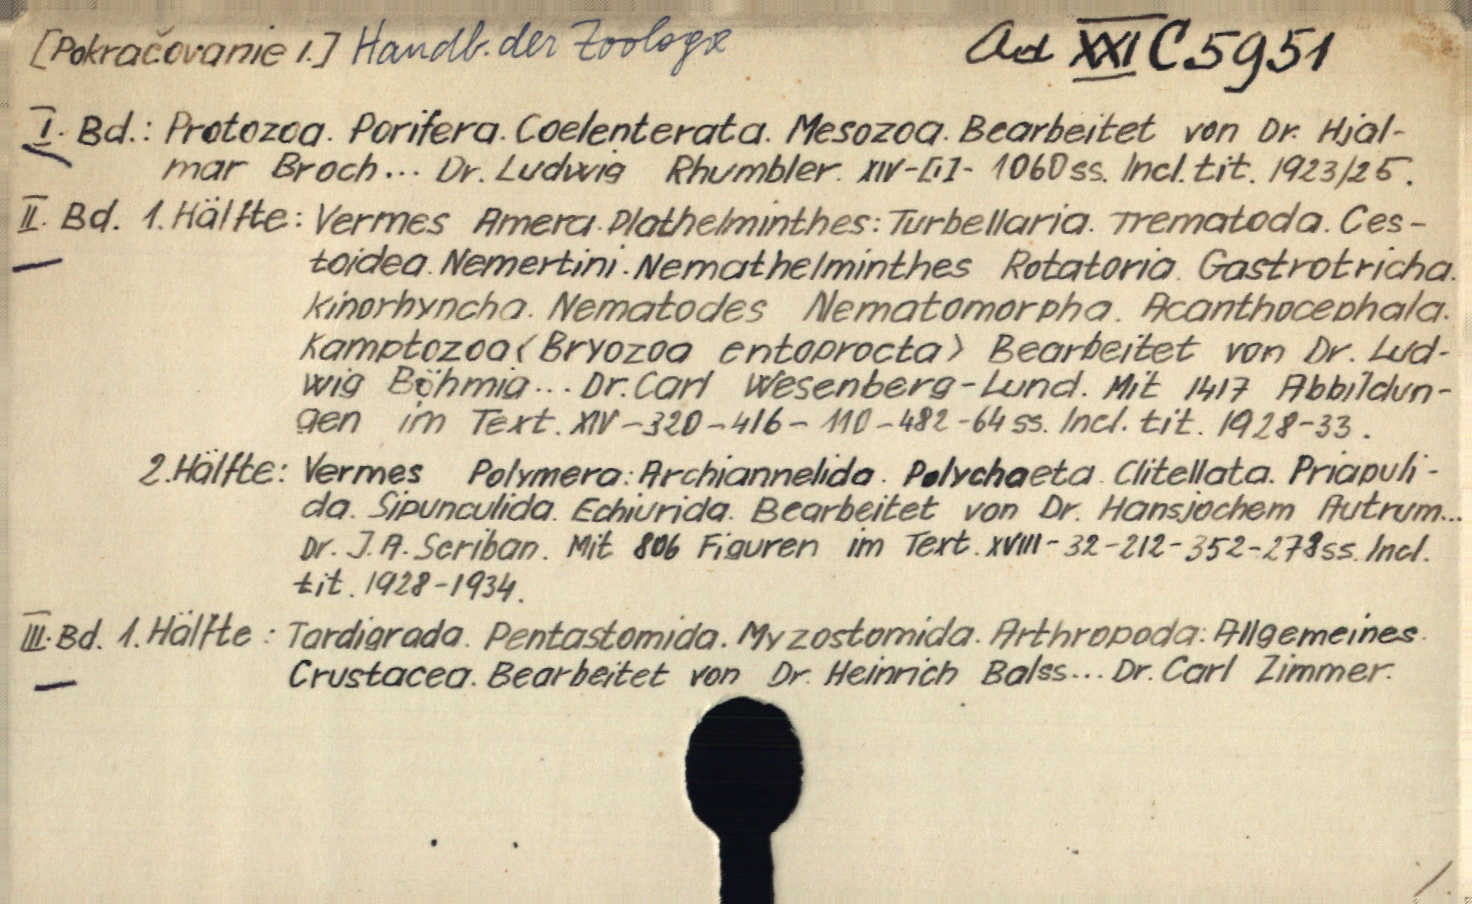 [Pokračovanie 1.] Handb. der Zoologie Ad XXI C 5951
I. Bd.: Protozoa. Porifera. Coelenterata. Mesozoa. Bearbeitet von Dr. Hjal-
mar Broch... Dr. Ludwig Rhumbler. XIV-[1]- 1060 ss. Incl. tit. 1923/25.
II. Bd. 1. Hälfte: Vermes Amera. Plathelminthes: Turbellaria. Trematoda. Ces-
toidea. Nemertini. Nemathelminthes Rotatoria. Gastrotricha.
Kinorhyncha. Nematodes Nematomorpha. Acanthocephala.
Kamptozoa <Bryozoa entoprocta> Bearbeitet von Dr. Lud-
wig Böhmig... Dr. Carl Wesenberg-Lund. Mit 1417 Abbildun-
gen im Text. XIV-320-416-110-482-64 ss. Incl. tit. 1928-33.
2. Hälfte: Vermes Polymera: Archiannelida. Polychaeta. Clitellata. Priapuli-
da. Sipunculida. Echiurida. Bearbeitet von Dr. Hansjochem Autrum...
Dr. J. A. Scriban. Mit 806 Figuren im Text. XVIII-32-212-352-278 ss. Incl.
tit. 1928-1934.
III. Bd. 1. Hälfte: Tardigrada. Pentastomida. Myzostomida. Arthropoda: Allgemeines.
Crustacea. Bearbeitet von Dr. Heinrich Balss... Dr. Carl Zimmer.